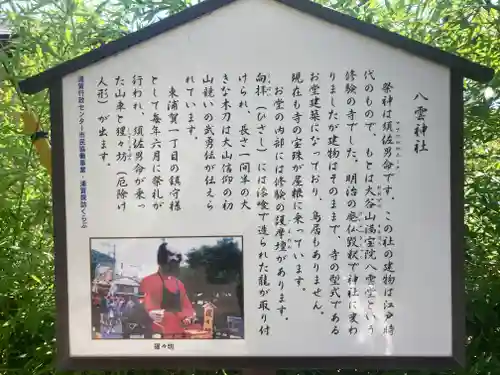 八雲神社
祭神は須佐男命です。この社の建物は江戸時
代のもので、もとは大谷山満宝院八雲堂という
修験の寺でした。明治の廃仏毀釈で神社に変わ
りましたが建物はそのままで、寺の型式である
お堂建築になっており、鳥居もありません。
現在も寺の宝珠が屋根に乗っています。
お堂の内部には修験の護摩壇があります。
向拝(ひさし)には漆喰で造られた龍が取り付
けられ、長さ一間半の大
きな木刀は大山信仰の初
山競いの武勇伝が伝えら
れています。
東浦賀一丁目の鎮守様
として毎年六月に祭礼が
行われ、須佐男命が乗っ
た山車と猩々坊(厄除け
人形)が出ます。
浦賀行政センター市民協働事業・浦賀探訪くらぶ
猩々坊